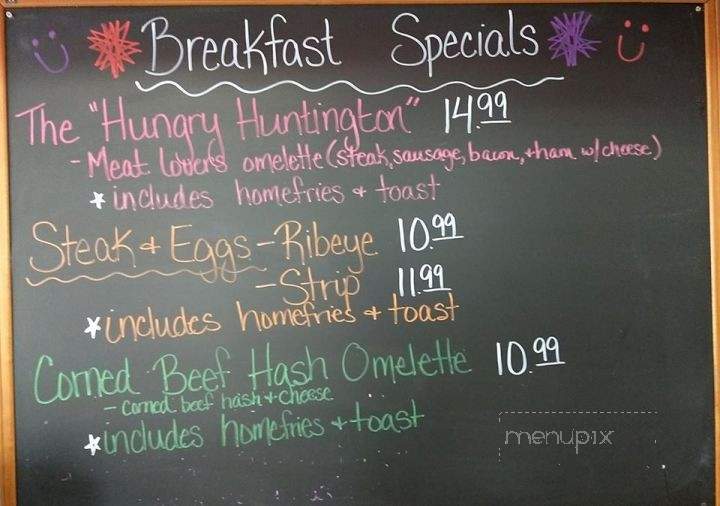 Breakfast Specials
The "Hungry Huntington" 14.99
- Meat lovers omelette (steak, sausage, bacon, + ham w/ cheese)
* includes homefries + toast
Steak + Eggs - Ribeye 10.99
- Strip 11.99
* includes homefries + toast
Corned Beef Hash Omelette 10.99
- corned beef hash + cheese
* includes homefries + toast
menupix